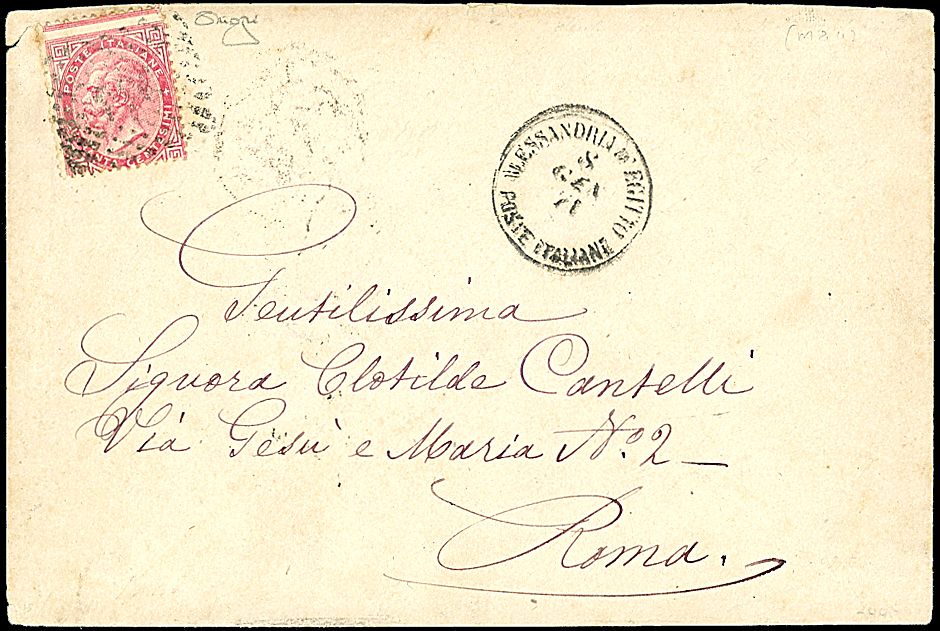 POSTE ITALIANE
CENTESIMI
ALESSANDRIA D'EGITTO
8
GEN
71
POSTE ITALIANE
Gentilissima
Signora Clotilde Cantelli
Via Gesù e Maria No. 2 —
Roma.